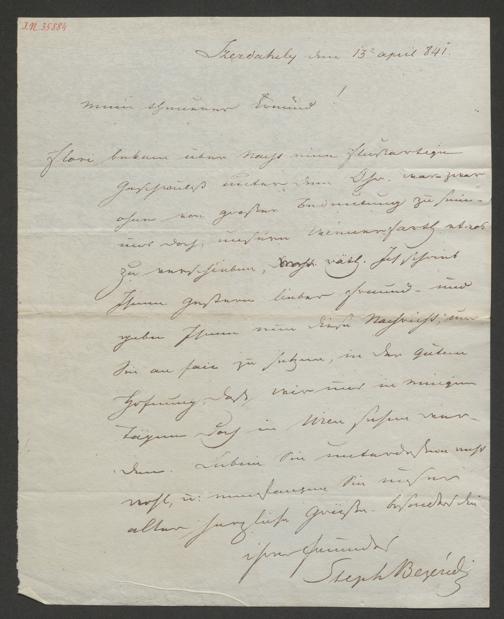 I.N. 35884
Szerdahely den 13t april 841.
Mein theurer Freund!
Flori bekam über Nacht eine flußartige
Geschwulst unter dem Ohr. war zwar
ohne von großer Bedeutung zu sein-
uns doch, unsere Wienerfarth etwas
zu verschieben, räth. Ich schrieb
Ihnen gestern lieber Freund - und
geben Ihnen nun diese Nachricht, um
Sie au fait zu setzen, in der guten
Hofnung, daß wir uns in einigen
Tägen doch in Wien sehen wer-
den. Leben Sie unterdessen recht
wohl, u: empfangen Sie unser
aller herzliche Grüße. besonders die
ihres Freundes
Steph Bezerédj